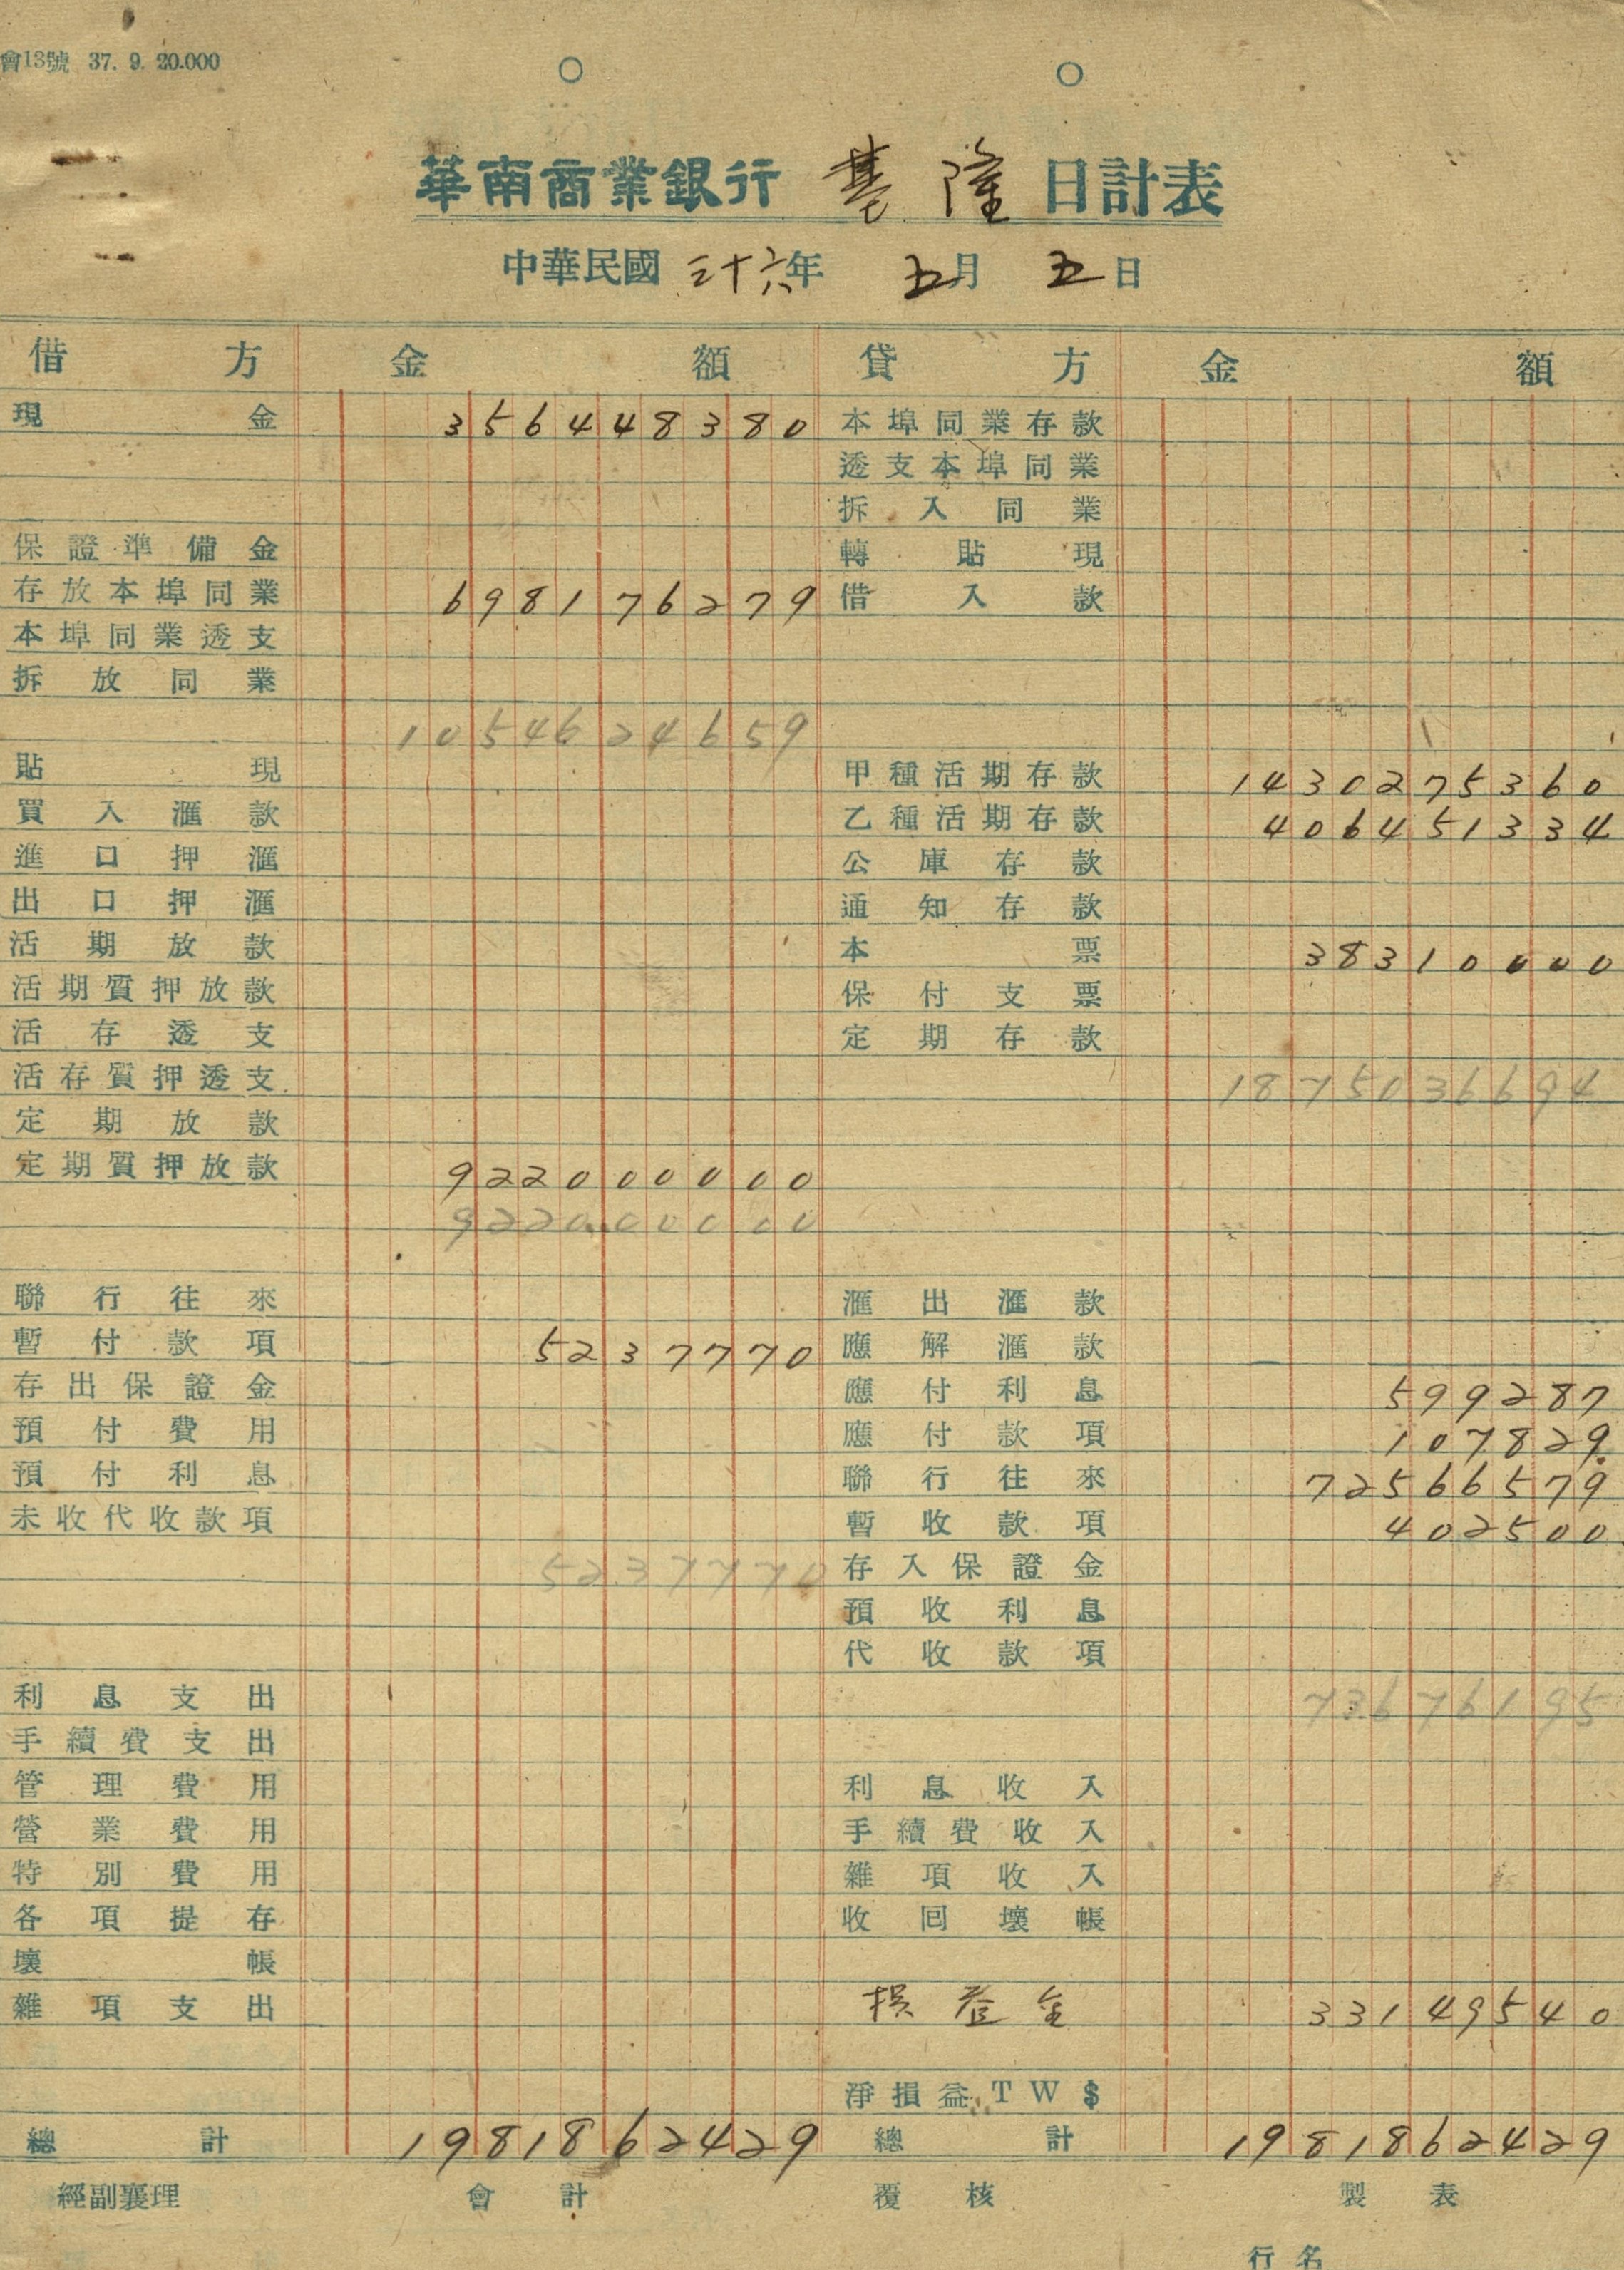 會13號 37. 9. 20.000
華南商業銀行 基隆 日計表
中華民國 三十六年 五月 五日
借方 金額 貸方 金額
現金 356448380 本埠同業存款
透支本埠同業
拆入同業
保證準備金 轉貼現
存放本埠同業 698176279 借入款
本埠同業透支
拆放同業
1054624659
貼現 甲種活期存款 1430275360
買入滙款 乙種活期存款 406451334
進口押滙 公庫存款
出口押滙 通知存款
活期放款 本票 38310000
活期質押放款 保付支票
活存透支 定期存款
活存質押透支 1875036694
定期放款
定期質押放款 922000000
922000000
聯行往來 滙出滙款
暫付款項 5237770 應解滙款
存出保證金 應付利息 599287
預付費用 應付款項 107829
預付利息 聯行往來 72566579
未收代收款項 暫收款項 402500
5237770 存入保證金
預收利息
代收款項
利息支出 73676195
手續費支出
管理費用 利息收入
營業費用 手續費收入
特別費用 雜項收入
各項提存 收回壞帳
壞帳
雜項支出 損益金 33149540
淨損益TW$
總計 1981862429 總計 1981862429
經副襄理 會計 覆核 製表
行名